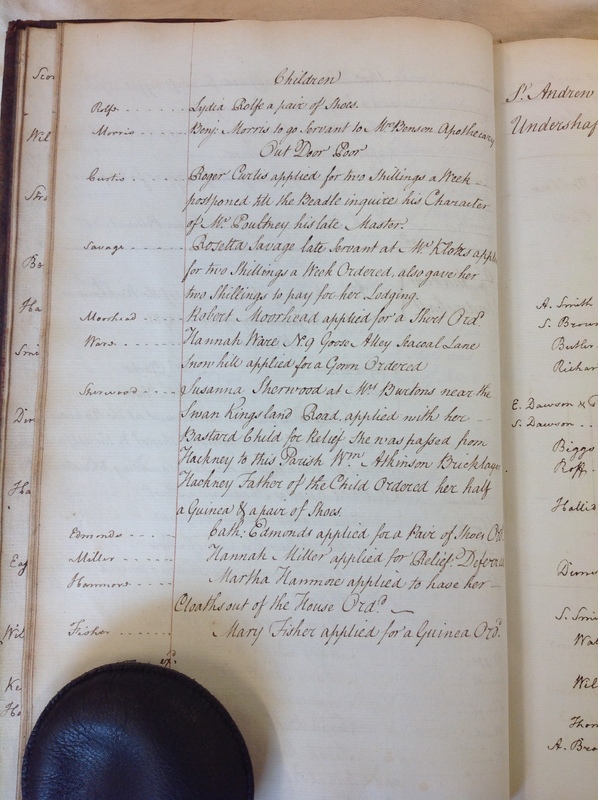 Children
Rolfe - - - - - Lydia Rolfe a pair of Shoes.
Morris - - - - - Benj. Morris to go Servant to Mr. Benson Apothecary
Out Door Poor
Curtis - - - - Roger Curtis applied for two Shillings a Week
postponed till the Beadle inquire his Character
of Mr. Poultney his late Master.
Savage - - - - Rosetta Savage late Servant at Mr. Klotts
for two Shillings a Week Ordered, also gave her
two Shillings to pay for her Lodging.
Moorhead - - - - Robert Moorhead applied for a Shirt Ord.
Ware - - - - Hannah Ware No. 9 Goose Alley Seacoal Lane
Snow hill applied for a Gown Ordered
Sherwood - - - - Susanna Sherwood at Mrs. Burtons near the
Swan Kingsland Road, applied with her
Bastard Child for Relief She was passed from
Hackney to this Parish Wm. Atkinson Bricklayer
Hackney Father of the Child Ordered her half
a Guinea & a pair of Shoes.
Edmonds - - - - Cath. Edmonds applied for a Pair of Shoes
Miller - - - - Hannah Miller applied for Relief.
Hanmore - - - - Martha Hanmore applied to have her
Cloaths out of the House Ord.d
Fisher - - - - Mary Fisher applied for a Guinea Ord.
St. Andrew
Undershaf
A. Smith
S. Brown
Butler
Richar
E. Dawson &
S. Dawson
Biggs
Roff
Hallid
S. Smi
Wil
Thor
A. Bro